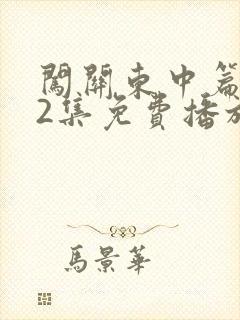 闖關東中篇
2集免費播放
馬景華